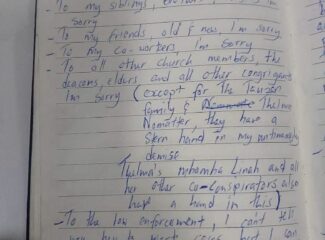 - To my siblings,
Sorry
- To my friends, old & new, I'm sorry
- To my co-workers, I'm Sorry
- To all other church members, the
deacons, elders and all other congrigants
I'm Sorry (except for The
family & Thelma
Nomatter, they have a
Stern hand in my
demise
Thelma's and all
her other co-conspirators also
have a hand in this)
- To the law enforcement, I can't tell
you how to cases but I can